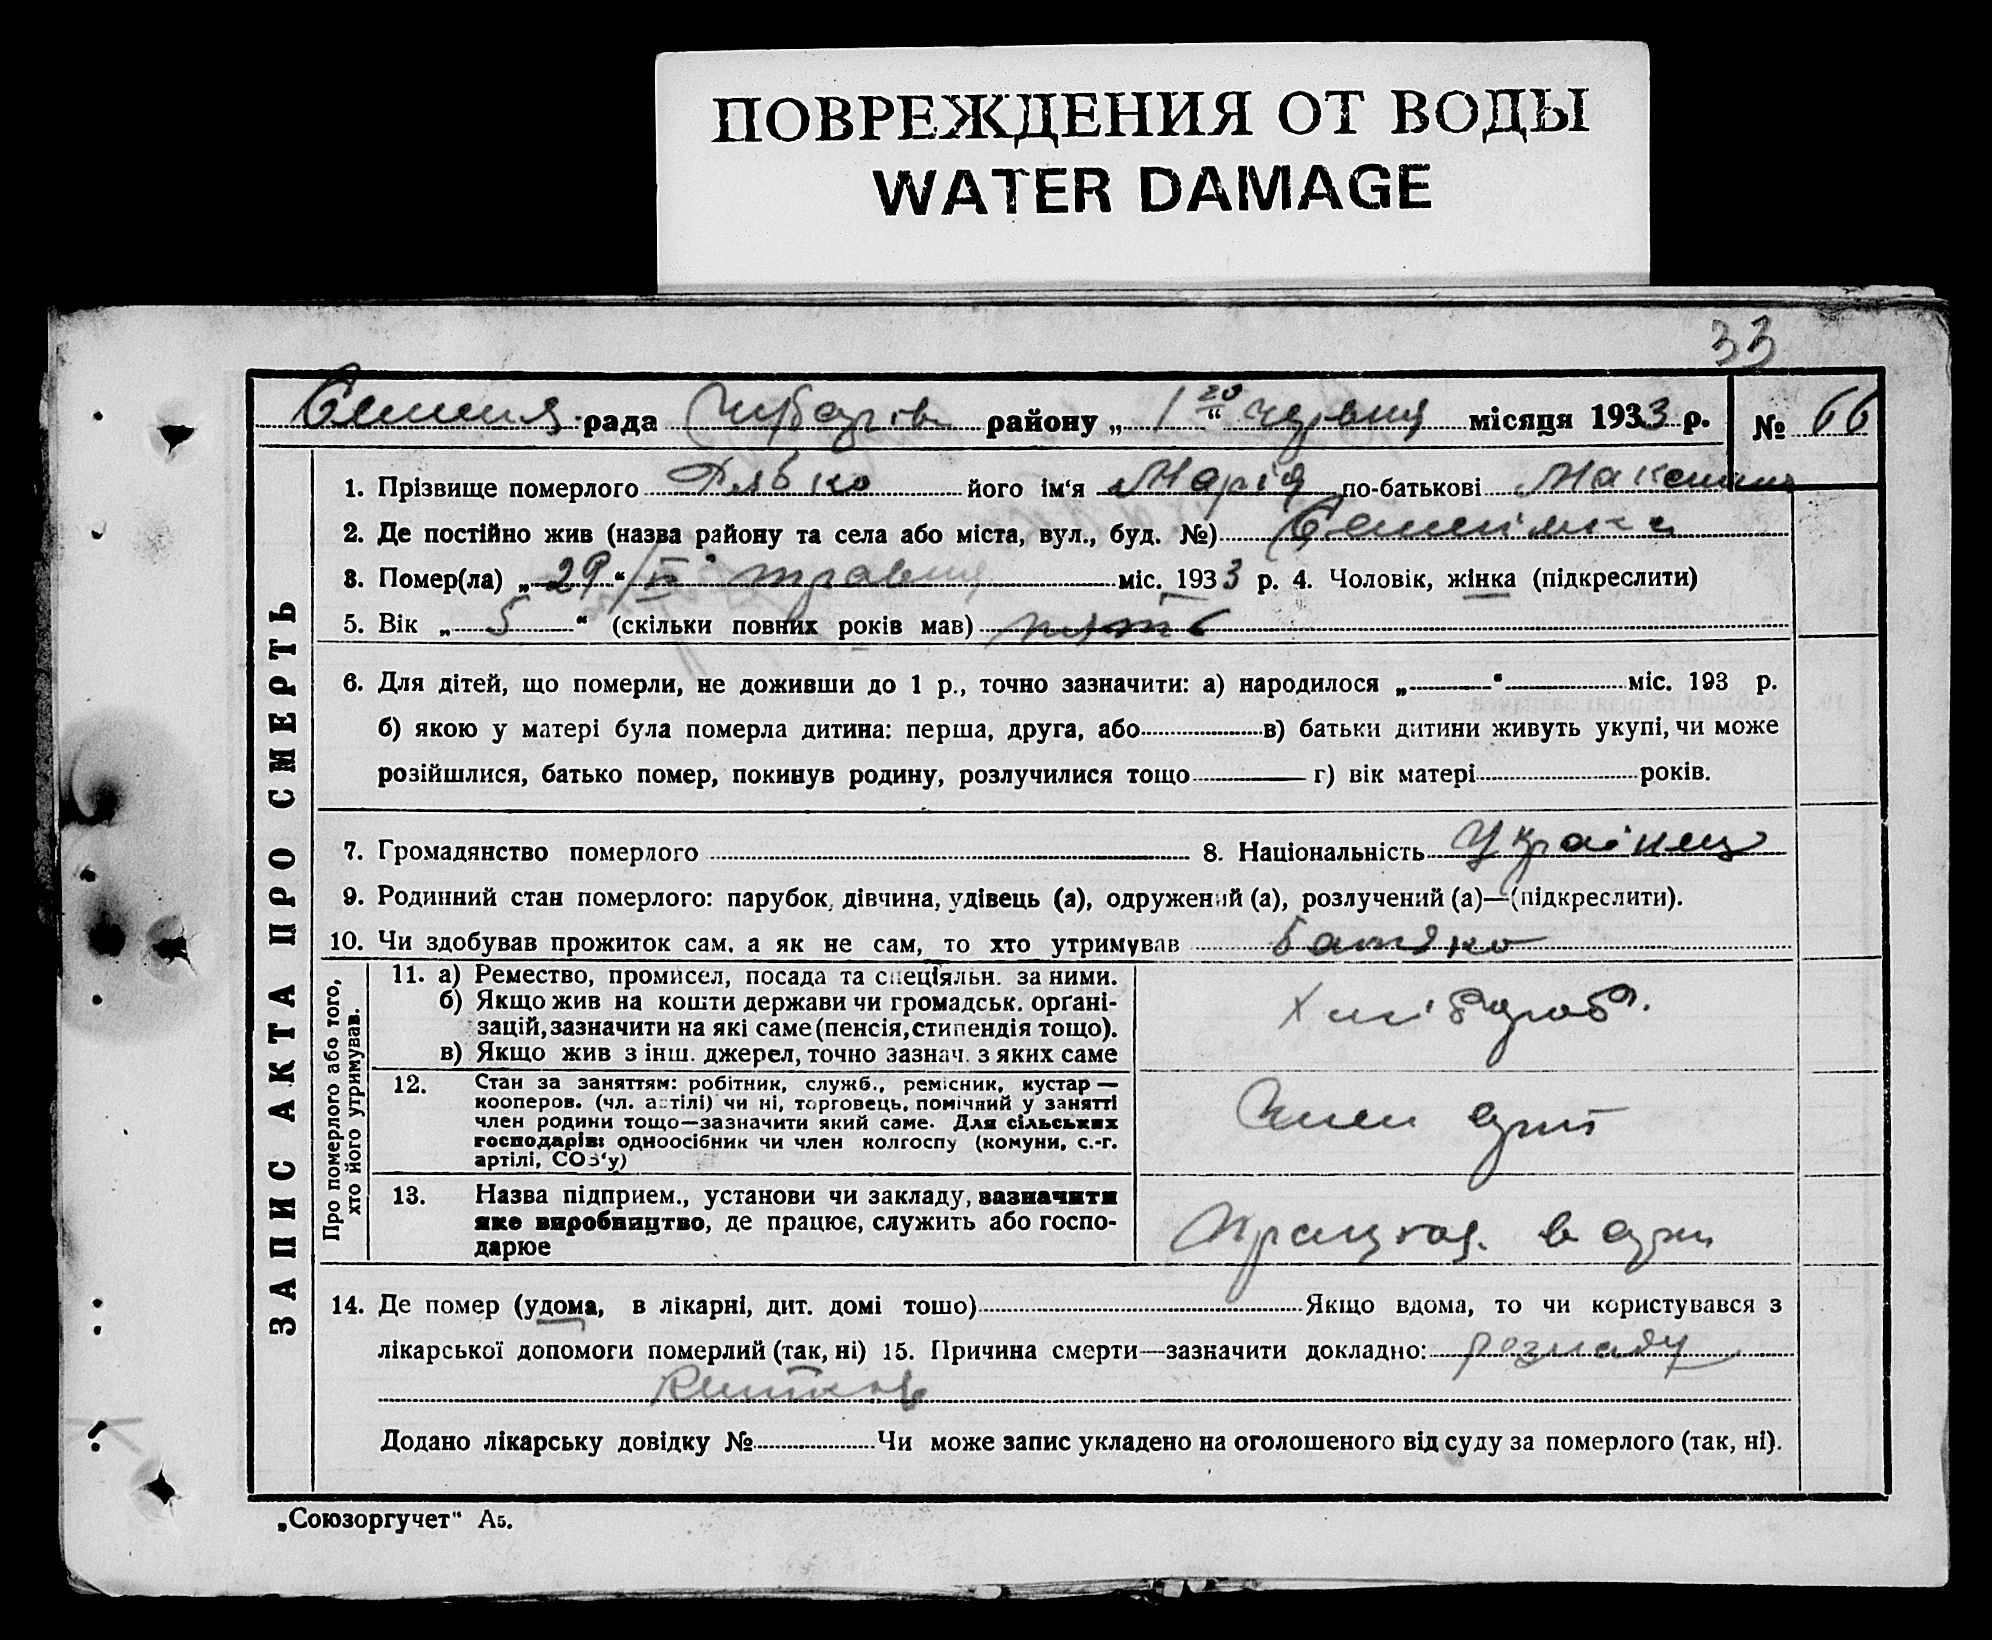 ПОВРЕЖДЕНИЯ ОТ ВОДЫ
WATER DAMAGE
33
рада району „1го“ червня місяця 1933 р. № 66
ЗАПИС АКТА ПРО СМЕРТЬ
1. Прізвище померлого його ім‘я Марія по-батькові
2. Де постійно жив (назва району та села або міста, вул., буд. №)
3. Помер(ла) „29“ травня міс. 1933 р. 4. Чоловік, жінка (підкреслити)
5. Вік „5“ (скільки повних років мав) пять
6. Для дітей, що померли, не доживши до 1 р., точно зазначити: а) народилося „ “ міс. 193 р.
б) якою у матері була померла дитина: перша, друга, або в) батьки дитини живуть укупі, чи може
розійшлися, батько помер, покинув родину, розлучилися тощо г) вік матері років.
7. Громадянство померлого 8. Національність Украінец
9. Родинний стан померлого: парубок, дівчина, удівець (а), одружений (а), розлучений (а)—(підкреслити).
10. Чи здобував прожиток сам, а як не сам, то хто утримував батько
Про померлого або того,
хто його утримував.
11. а) Ремество, промисел, посада та спеціяльн. за ними.
б) Якщо жив на кошти держави чи громадськ. орґані-
зацій, зазначити на які саме (пенсія, стипендія тощо).
в) Якщо жив з інш. джерел, точно зазнач. з яких саме
Хлібороб.
12. Стан за заняттям: робітник, служб., ремісник, кустар —
кооперов. (чл. артілі) чи ні, торговець, помічний у занятті
член родини тощо—зазначити який саме. Для сільських
господарів: одноосібник чи член колгоспу (комуни, с.-г.
артілі, СОЗ‘у)
Член
13. Назва підприєм., установи чи закладу, зазначити
яке виробництво, де працює, служить або госпо-
дарює
в
14. Де помер (удома, в лікарні, дит. домі тощо) Якщо вдома, то чи користувався з
лікарської допомоги померлий (так, ні) 15. Причина смерти—зазначити докладно: розладу
Додано лікарську довідку № Чи може запис укладено на оголошеного від суду за померлого (так, ні).
„Союзоргучет“ А5.